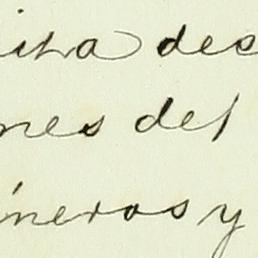 ita des
nes del
íneros y